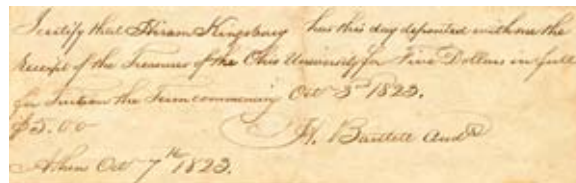 I certify that Hiram Kingsbury has this day deposited with me the
Receipt of the Treasurer of the Ohio University for Five Dollars in full
for Tuition the Term commencing Oct 3d 1823.
$5.00
H. Bartlett Audr
Athens Oct 7th 1823.